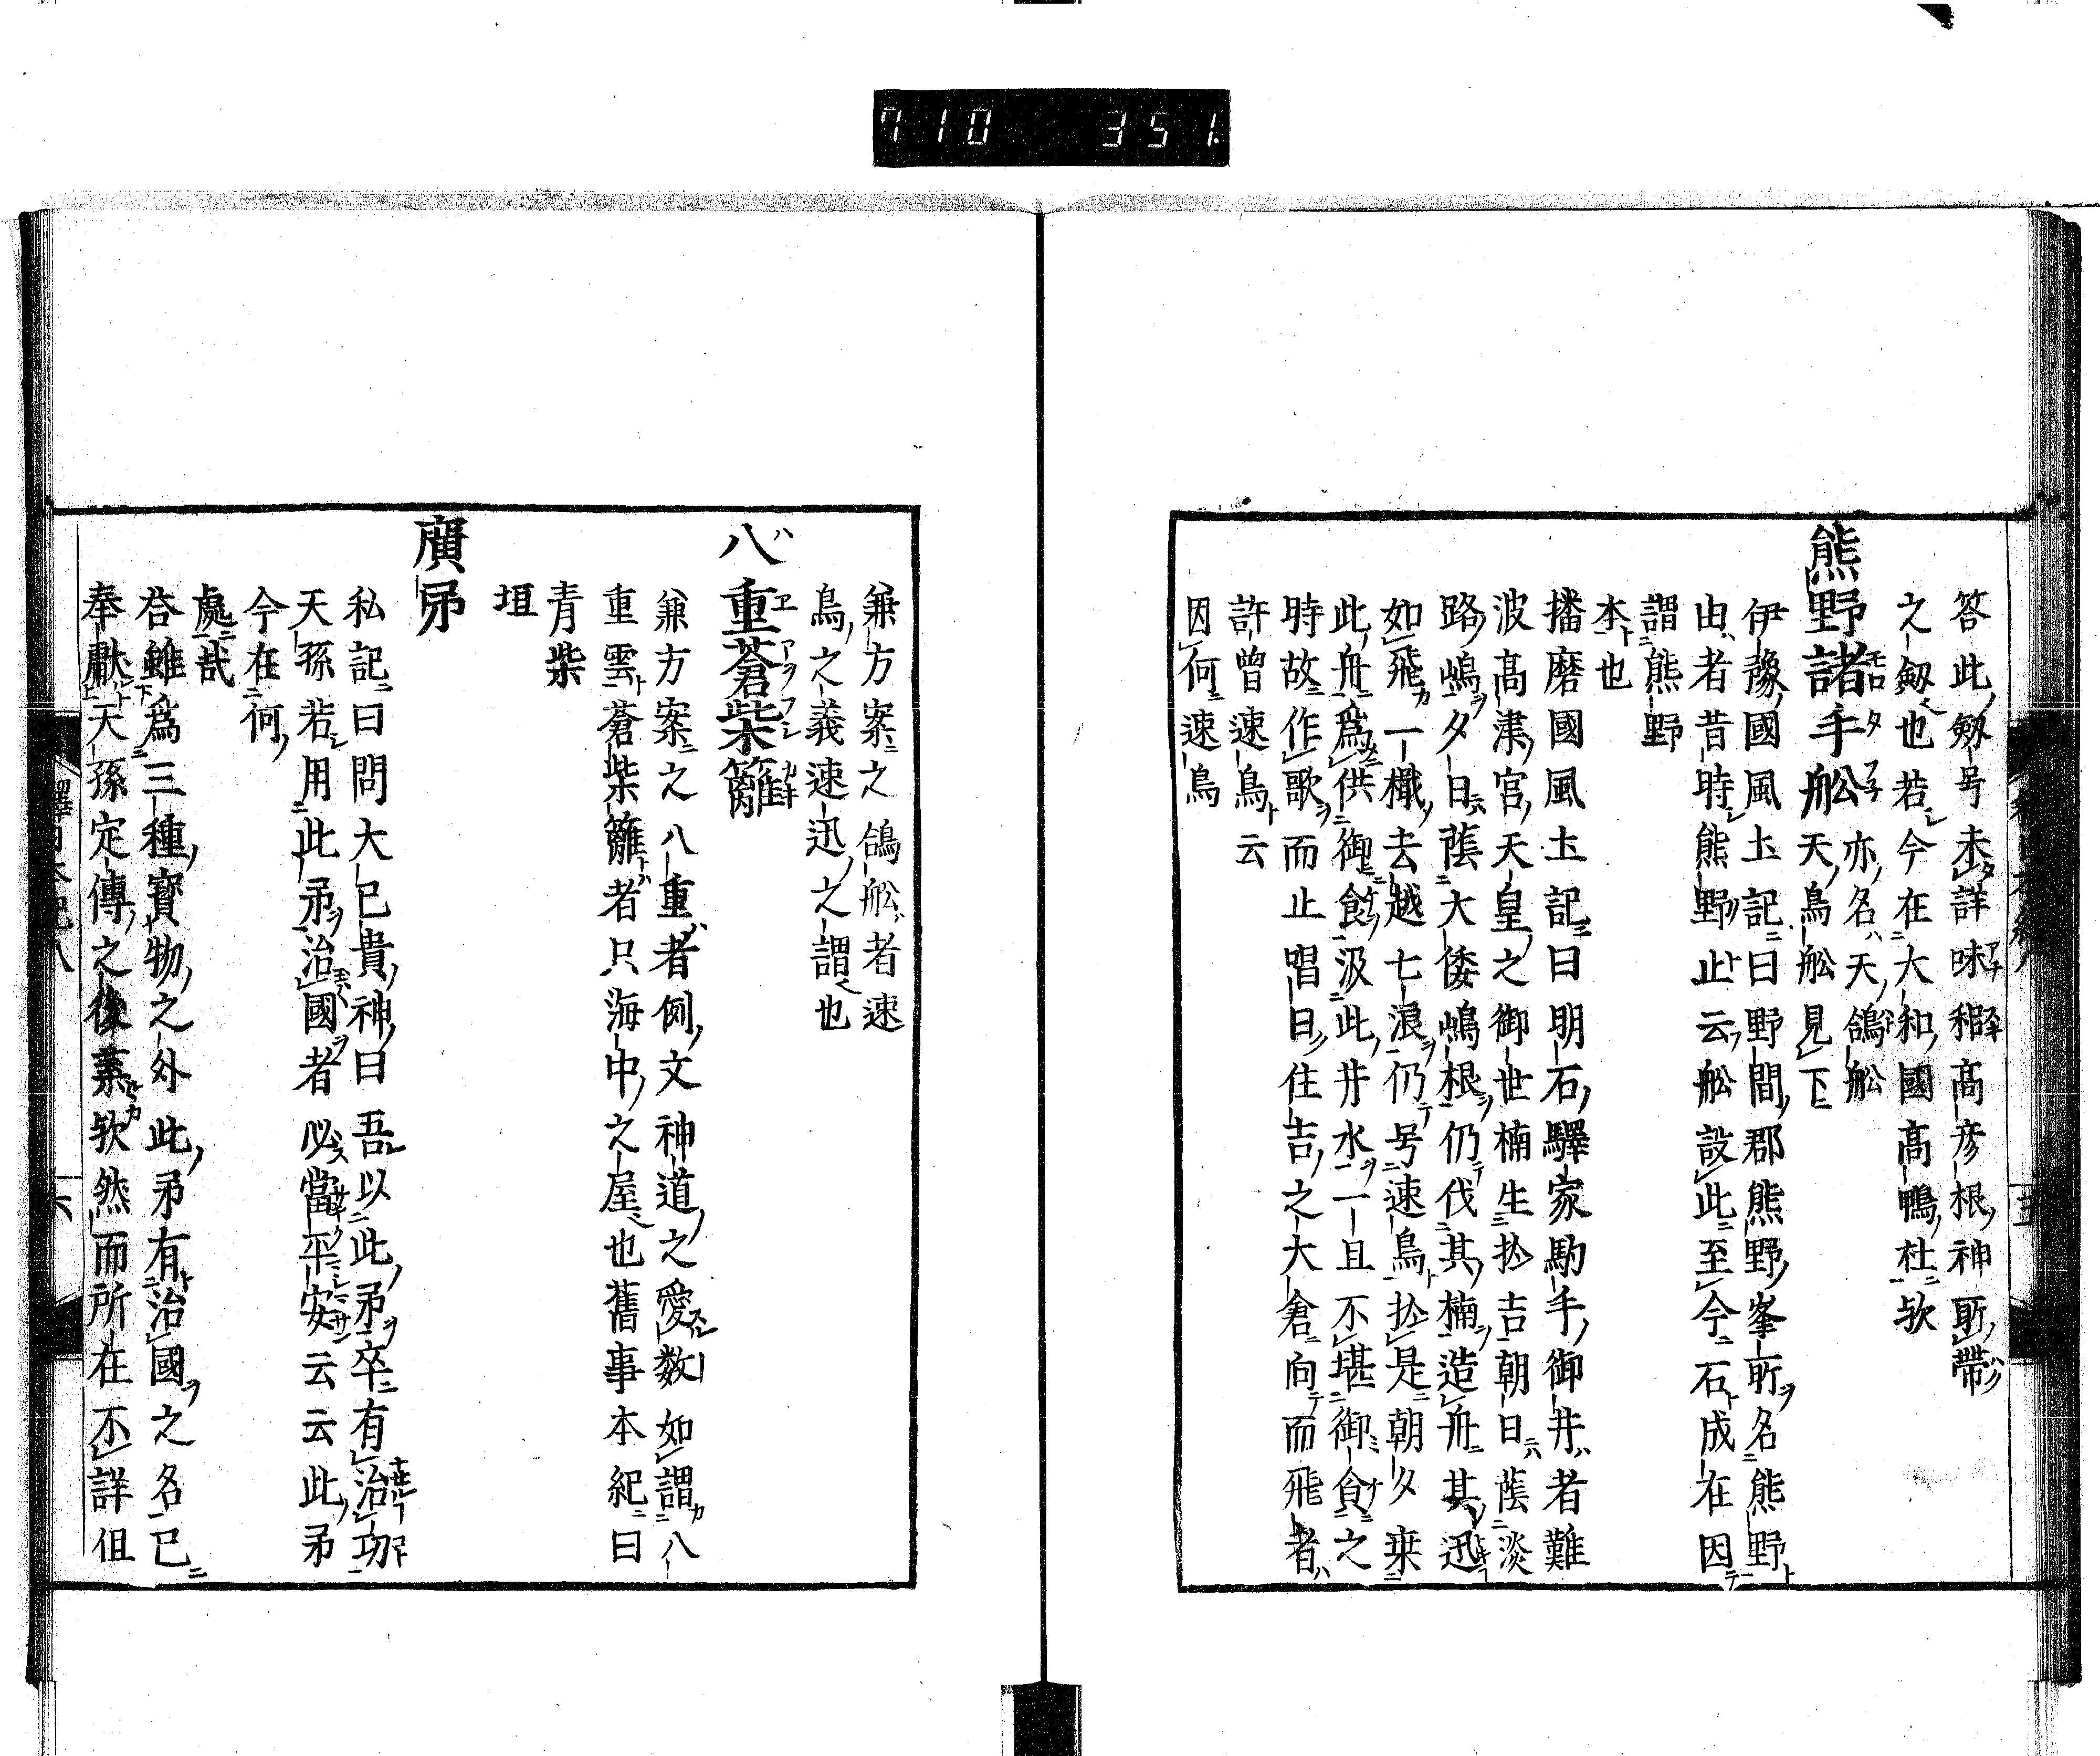 710 351
答此劔号未詳味耜高彦根神所帶
之劔也若今在大和國高鴨社欤
熊野諸手舩 亦名天鴿舩
天鳥舩見下
伊豫國風土記曰野間郡熊野峯所名熊野
由者昔時熊野止云舩設此至今石成在因
謂熊野
本也
播磨國風土記曰明石驛家駒手御井者難
波高津宮天皇之御世楠生於井口朝日蔭淡
路嶋夕日蔭大倭嶋根仍伐其楠造舟其迅
如飛一檝去越七浪仍号速鳥於是朝夕乗
此舟為供御食汲此井水一旦不堪御食之
時故作歌而止唱曰住吉之大倉向而飛者
許曽速鳥云
因何速鳥
兼方案之鴿舩者速
鳥之義速迅之謂也
八重蒼柴籬
兼方案之八重者例文神道之愛数如謂八
重雲蒼柴籬者只海中之屋也舊事本紀曰
青柴
垣
廣矛
私記曰問大己貴神曰吾以此矛卒有治功
天孫若用此矛治國者必當平安云云此矛
今在何
處哉
荅雖為三種寳物之外此矛有治國之名已
奉獻天孫定傳之後葉欤然而所在不詳但
釋日本紀八
六
五